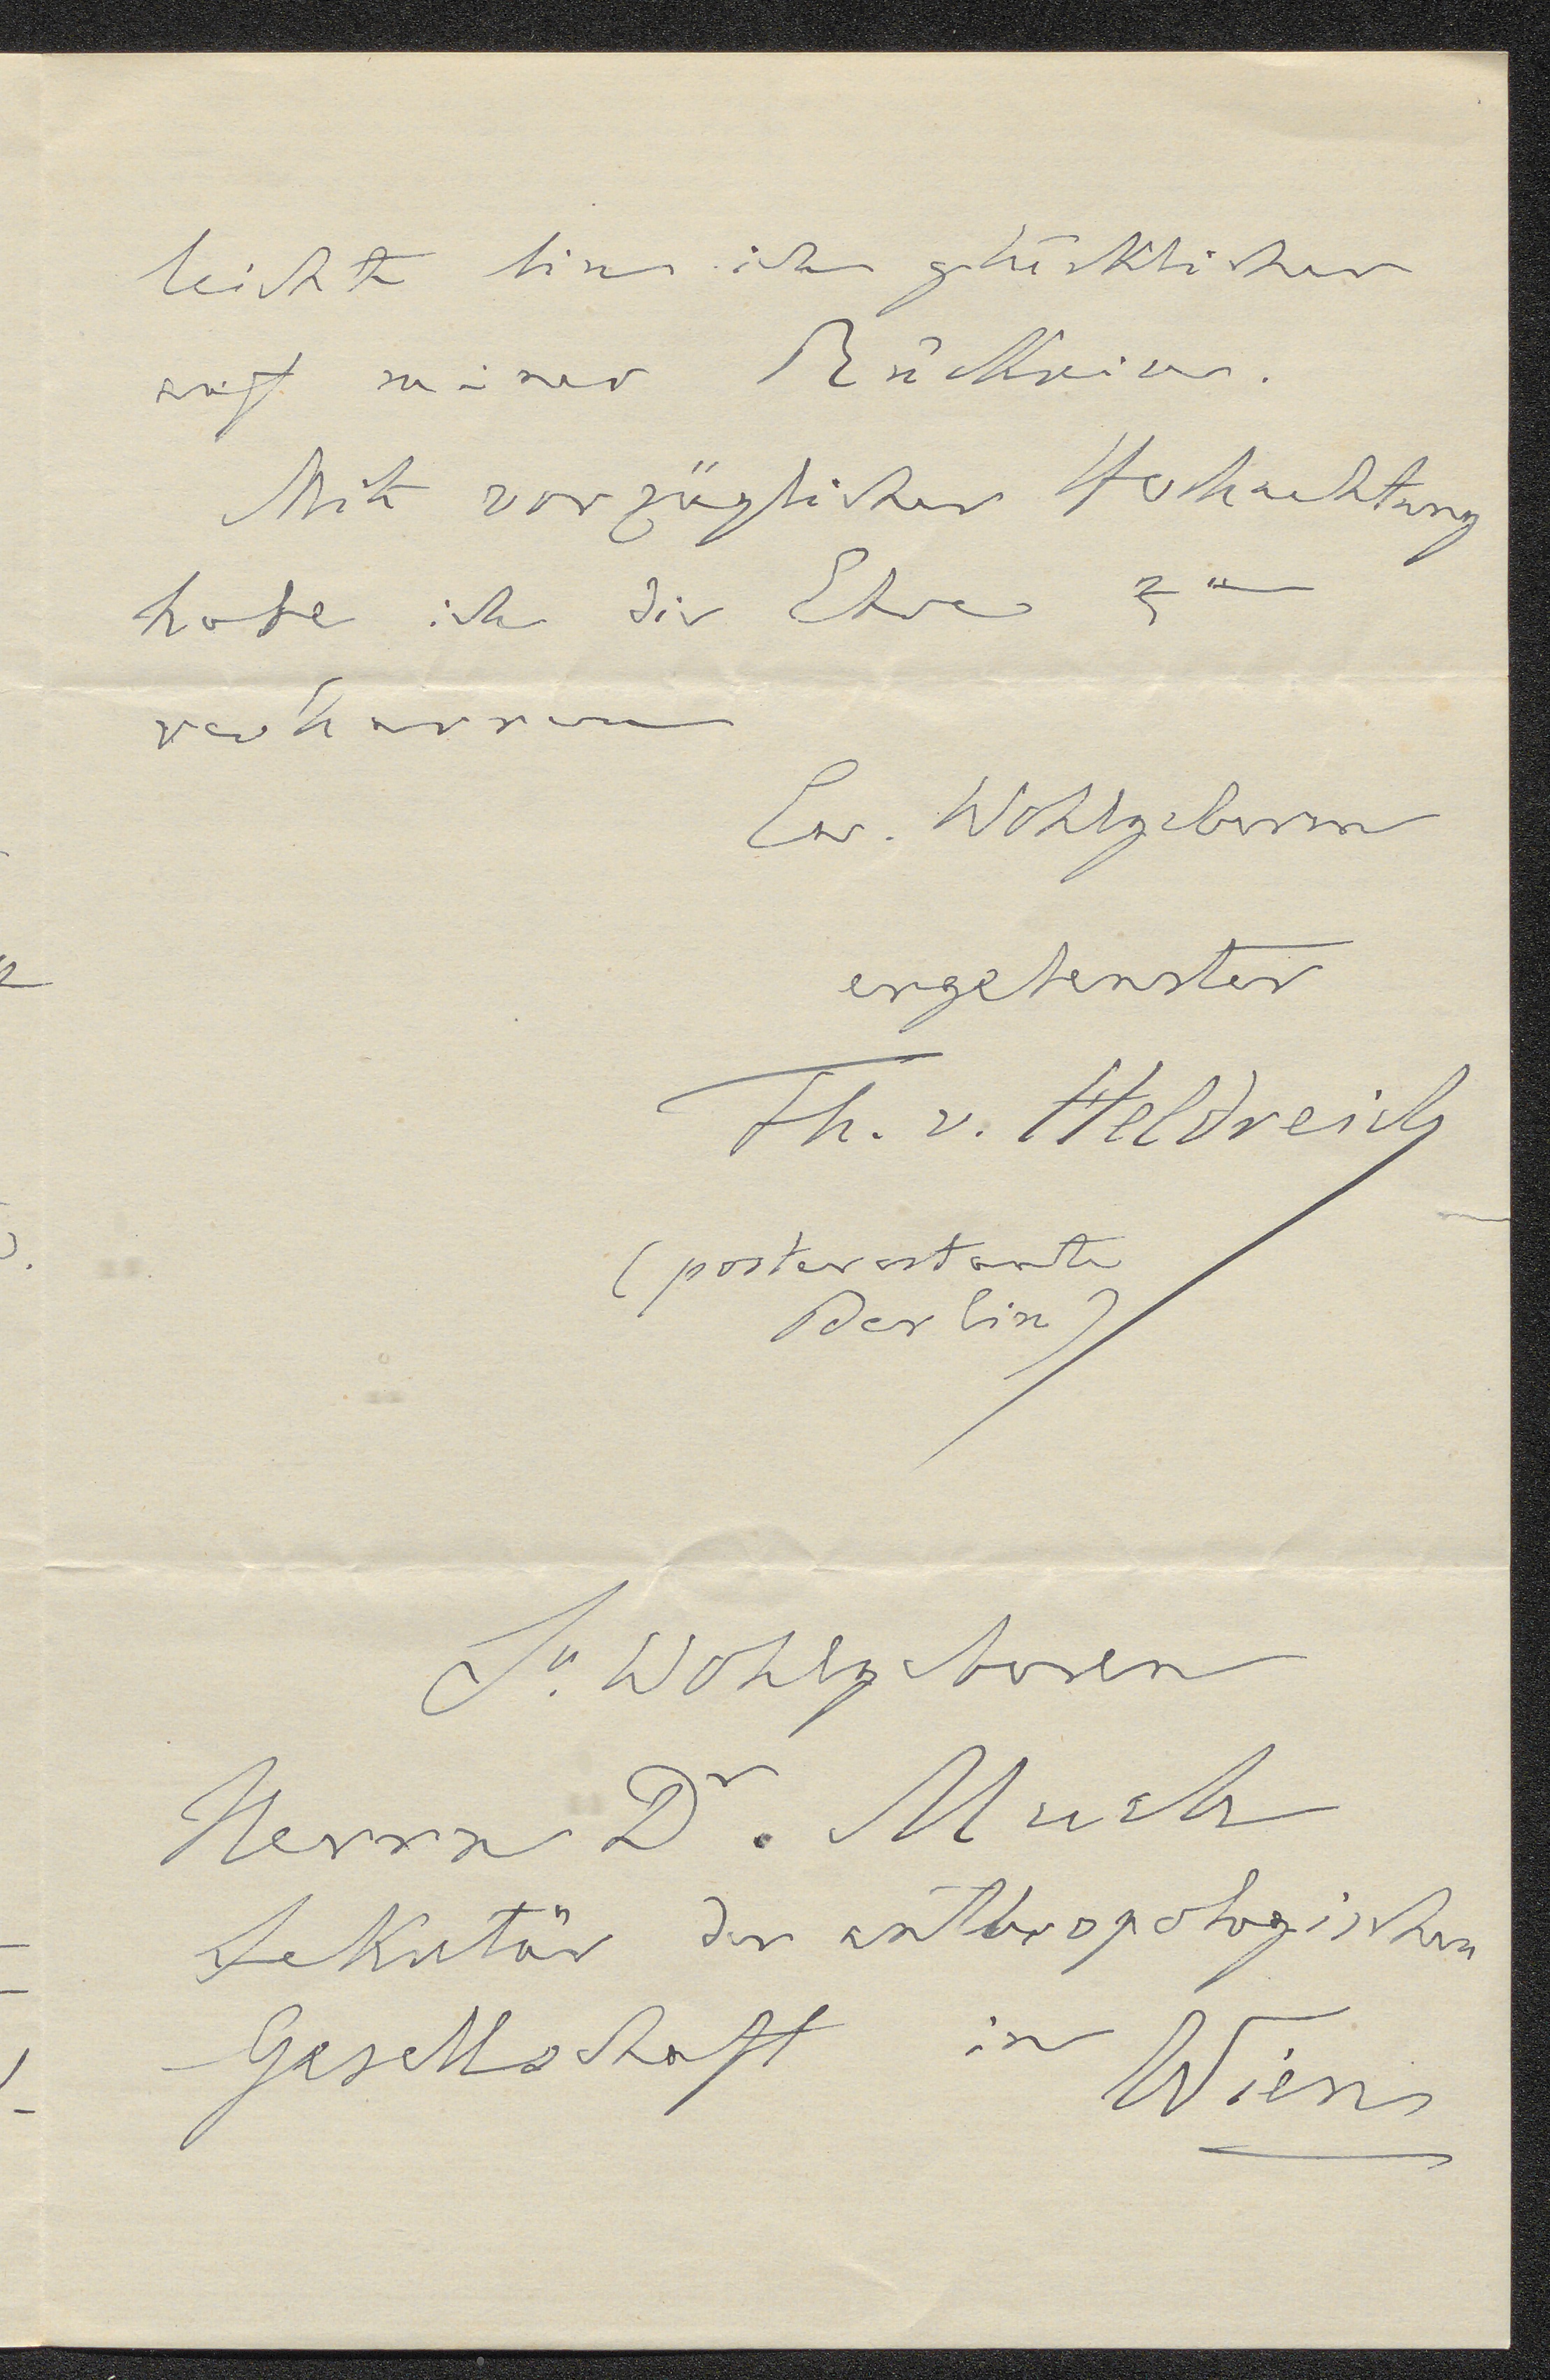 leicht bin ich glücklicher
auf meiner Rückreise.
Mit vorzüglicher Hochachtung
habe ich die Ehre zu
verharren
Ew. Wohlgeboren
ergebenster
Th. v. Heldreich
(posterestante
Berlin)
Sr. Wohlgeboren
Herrn Dr. Much
Sekretär der anthropologischen
Gesellschaft in Wien